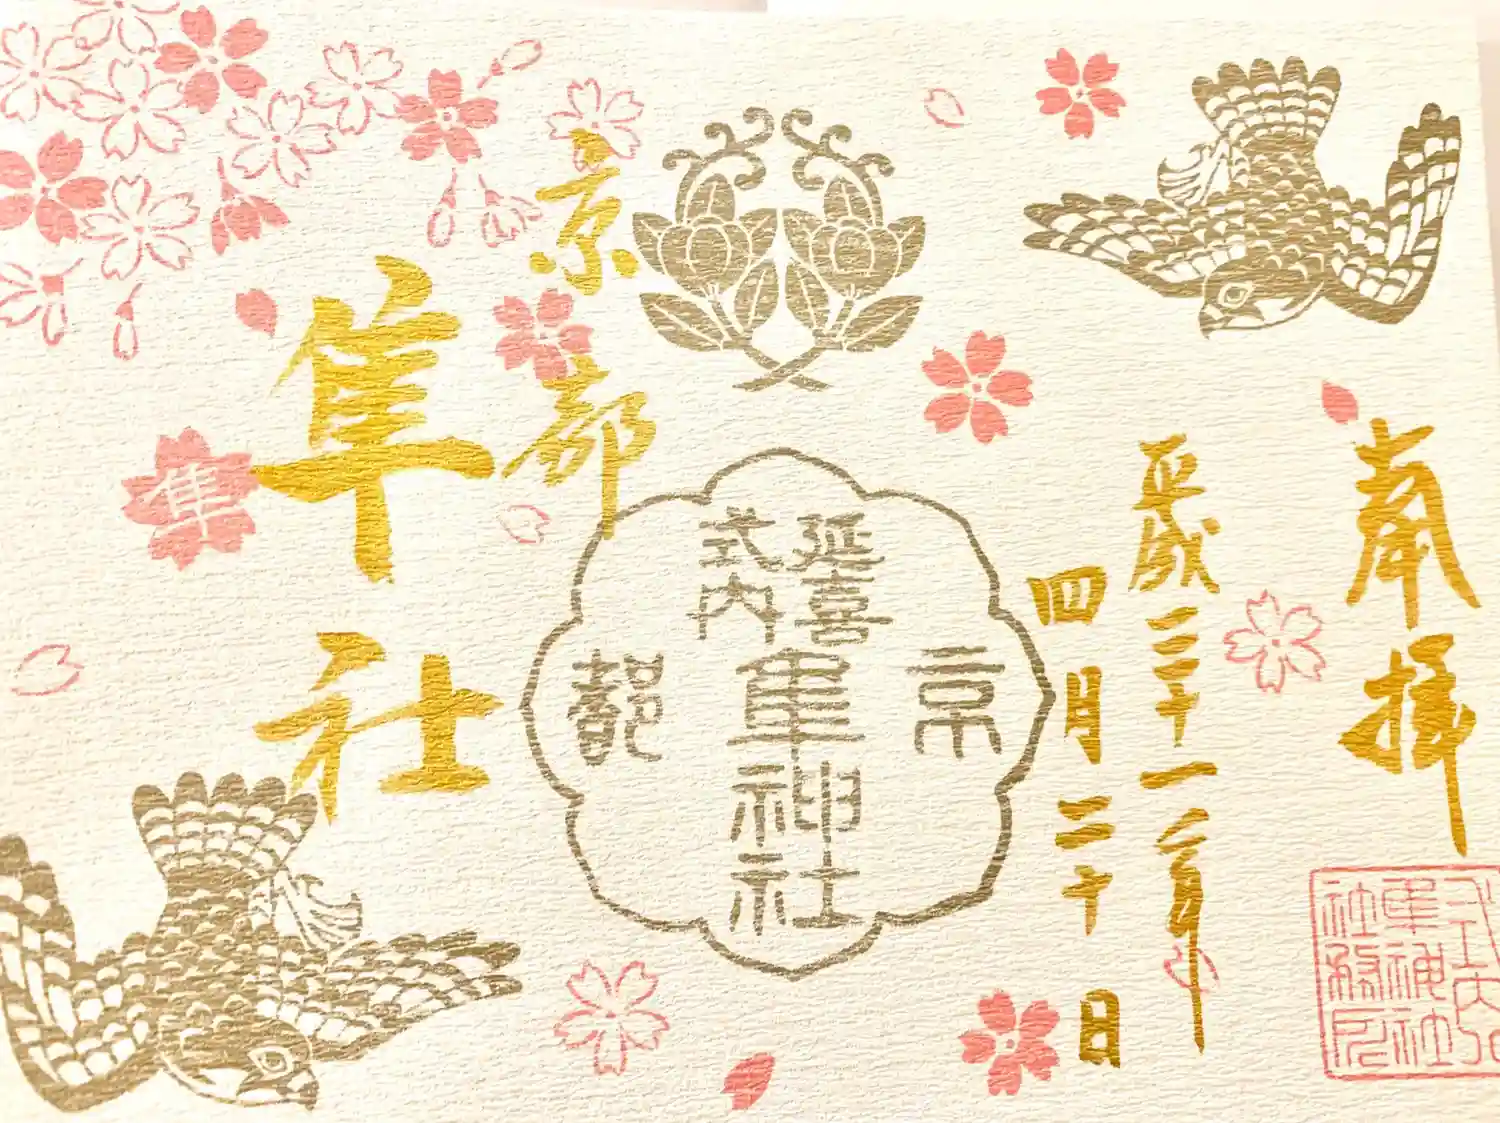 奉拝
平成三十一年
四月二十日
京都
隼社
延喜
式内
隼神社
京都
隼
式内
隼神社
社務所